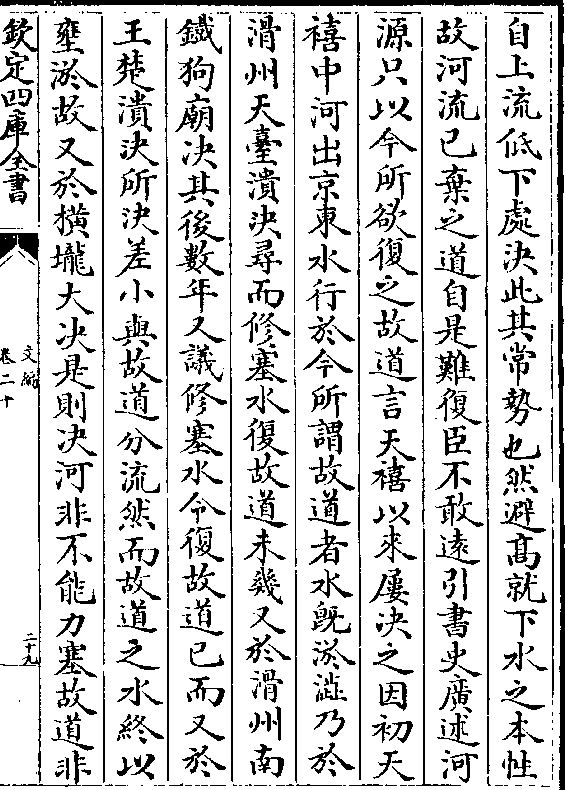 自上流低下處决此其常勢也然避髙就下水之本性
故河流已棄之道自是難復臣不敢逺引書史廣述河
源只以今所欲復之故道言天禧以來屢决之因初天
禧中河出京東水行於今所謂故道者水既淤澁乃於
滑州天臺潰决尋而修塞水復故道未幾又於滑州南
鐵狗廟决其後數年又議修塞水令復故道已而又於
王楚潰决所决差小與故道分流然而故道之水終以
壅淤故又於横壠大决是則决河非不能力塞故道非
欽定四庫全書
文編
卷二十
二十九